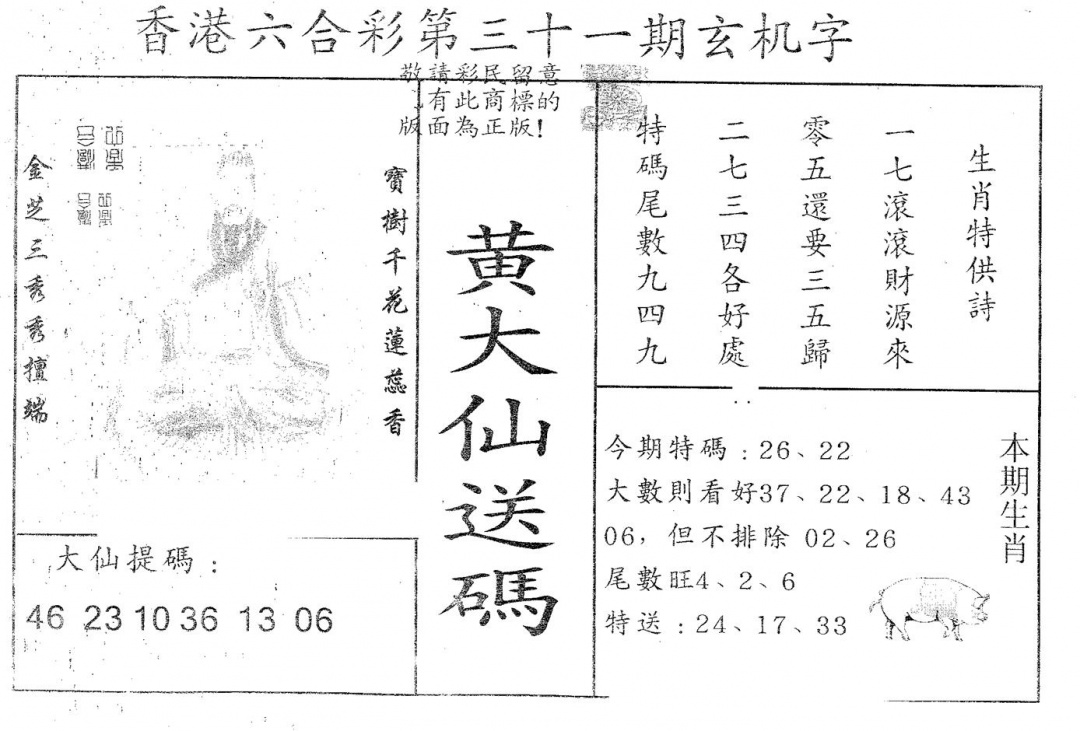 香港六合彩第三十一期玄机字
敬請彩民留意
有此商標的
版面為正版!
金芝三秀秀擅端
寶樹千花蓮蕊香
黄大仙送碼
生肖特供詩
一七滾滾財源來
零五還要三五歸
二七三四各好處
特碼尾數九四九
大仙提碼:
46 23 10 36 13 06
本期生肖
今期特碼:26、22
大數則看好37、22、18、43
06,但不排除 02、26
尾數旺4、2、6
特送:24、17、33